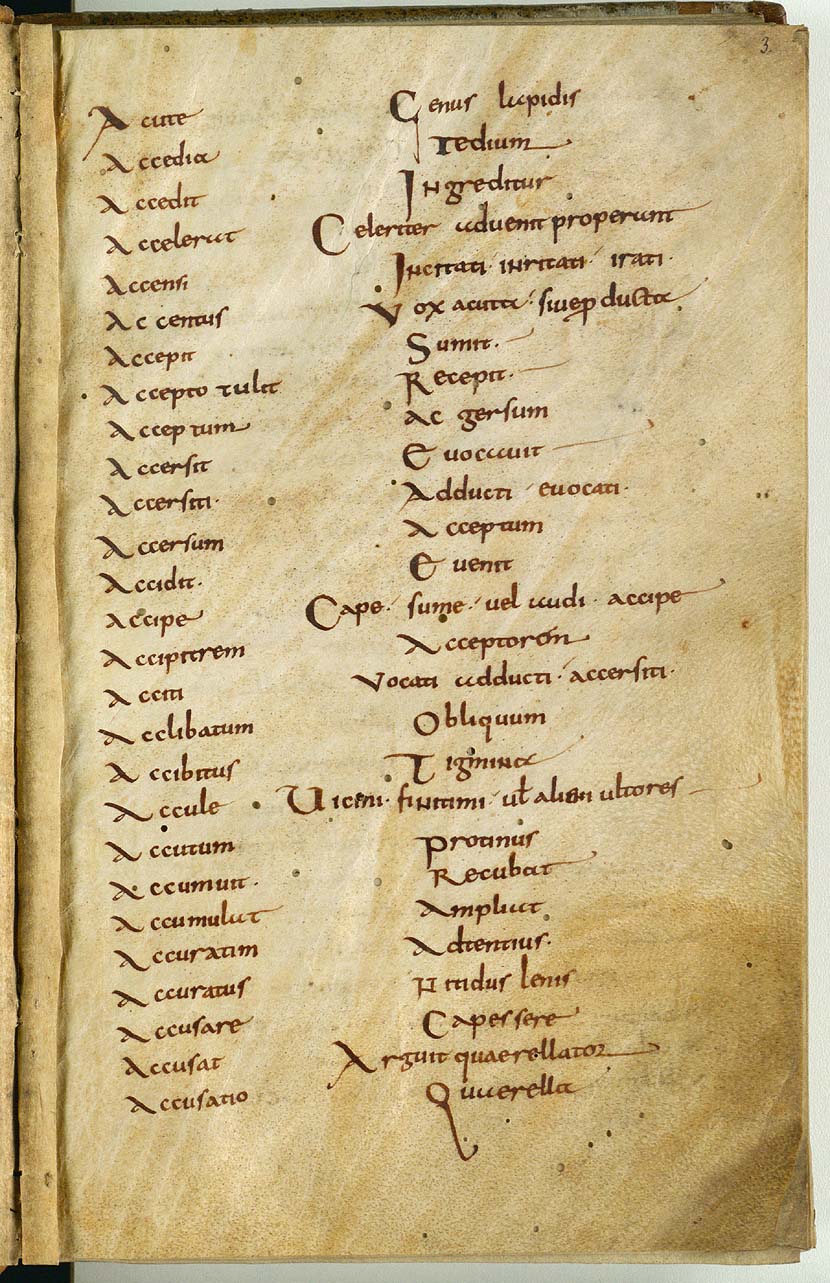 3
Acate Genus lapidis
Accedia Tedium
Accedit Ingreditur
Accelerat Celeriter advenit properant
Accensi Incitati · inritati · irati ·
Accentus Vox acuta · sive producta
Accepit Sumit ·
Accepto tulit Recepit ·
Acceptum ac gersum
Accersit Evocavit
Accersiti · Adducti · evocati ·
Accersum Acceptum
Accidit · Evenit
Accipe Cape · sume · vel audi · accipe
Accipitrem Acceptorem
Acciti Vocati adducti · accersiti ·
Acclibatum Obliquum
Accibitus Tigmina
Accule Uiceni · finitimi · vel alieni ultores
Accutum Protinus
Accumuit · Recubat
Accumulat Ampliat
Accuratim Adtentius ·
Accuratus Nitidus lenis
Accusare Capessere
Accusat Arguit quaerellator
Accusatio Quaerella